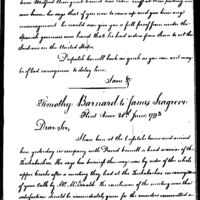 been
was here, he says that if you were to come up and give him any
encouragement he would soon give you a full proof from under the
Spanish governor own hand that he had orders from them to set the
Indians on the United States.
Dispatch Cornell back as quick as you can, as it may
be of bad consequence to delay him.
I am &c
Timothy Barnard to James Seagrove
Flint River 20th June 1793
Dear Sir,
I have been at the Cupitahs home and arrived
here yesterday in company with David Cornell a head warrior of the
Tuckabatchees. He says his coming this way was by order of the whole
upper Creeks after a meeting they had at the Tuckabatchees on receipt
of your talk by Mr. McDonald. The contents of the meeting was that
satisfaction should be immediately given for the murders committed on